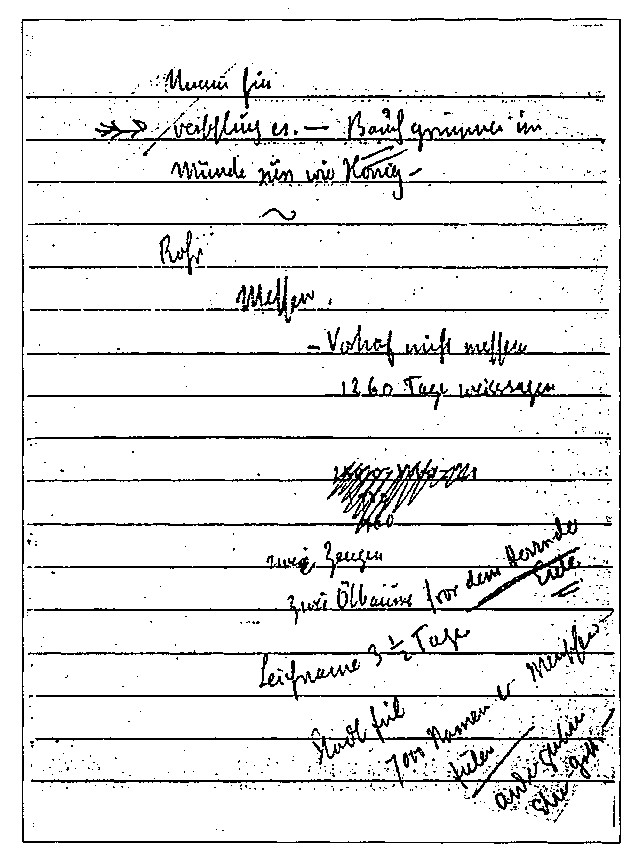 Nimm hin
verschling es. — Bauch grimmen im
Munde süss wie Honig —
Rohr
Messen.
— Vorhof nicht messen
1260 Tage weissagen
zwei Zeugen
zwei Ölbäume / vor dem Herrn der
Erde
Leichname 3 1/2 Tage
Stadt fiel
7000 Namen d Menschen
fielen
andr gaben
Ehre gott.